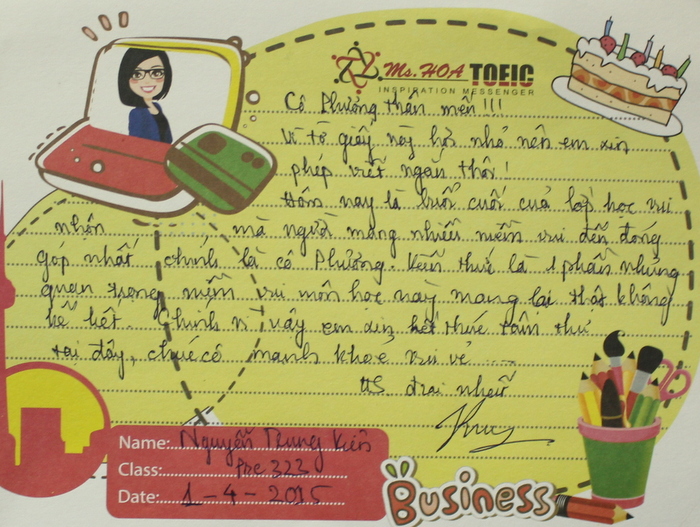 Ms. HOA TOEIC
INSPIRATION MESSENGER
Cô Phương thân mến !!!
Vì tờ giấy này hơi nhỏ nên em xin
phép viết ngắn thôi!
Hôm nay là buổi cuối của lớp học vui
nhộn mà người mang nhiều niềm vui đến đóng
góp nhất chính là cô Phương. Kiến thức là 1 phần nhưng
quan trọng niềm vui môn học này mang lại thật không
hề hết. Chính vì vậy em xin kết thúc tâm thư
tại đây, chúc cô mạnh khoẻ vui vẻ .....
HS
Name: Nguyễn Trung Kiên
Class: Pre 222
Date: 1-4-2015
BUSINESS